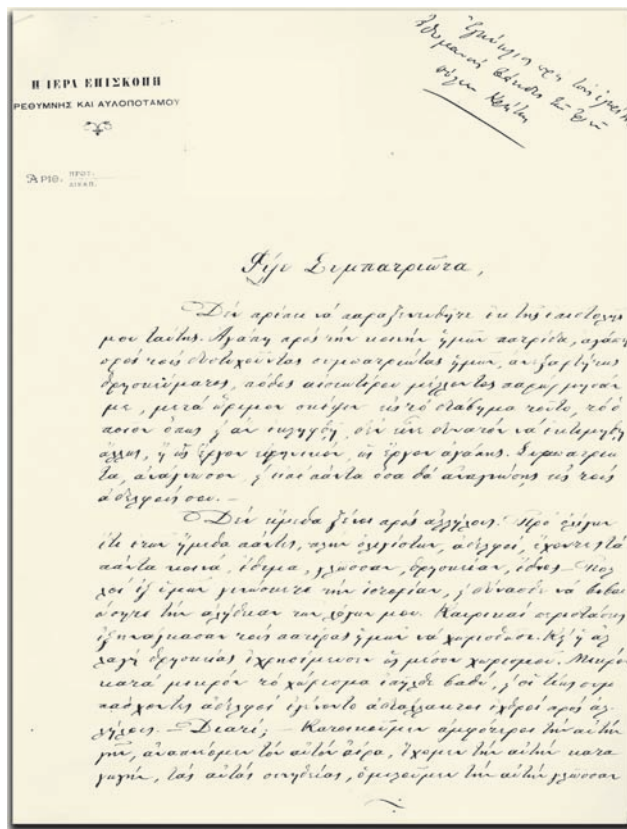 Η ΙΕΡΑ ΕΠΙΣΚΟΠΗ
ΡΕΘΥΜΝΗΣ ΚΑΙ ΑΥΛΟΠΟΤΑΜΟΥ
ΑΡΙΘ. ΠΡΩΤ.
ΔΙΕΚΠ.
Ἐγκύκλιος πρὸς τοὺς
Κρήτης
Φίλε Συμπατριῶτα,
Δὲν πρέπει νὰ παραξενευθῆτε ἐκ τῆς ἐπιστολῆς
μου ταύτης. Ἀγάπη πρὸς τὴν κοινὴν ἡμῶν πατρίδα, ἀγάπη
πρὸς τοὺς δυστυχοῦντας συμπατριώτας ἡμῶν, ἀνεξαρτήτως
θρησκεύματος, πόθος αἰσιωτέρου μέλλοντος παρώρμησάν
με, μετὰ ὥριμον σκέψιν εἰς τὸ διάβημα τοῦτο, τὸ ὁ
ποῖον ὅπως κι' ἂν ἐκληφθῇ, δὲν εἶνε δυνατὸν νὰ ἐκτιμηθῇ
ἄλλως, ἢ ὡς ἔργον εἰρηνικόν, ὡς ἔργον ἀγάπης. Συμπατριῶ
τα, ἀνάγνωσον, κ' εἰπὲ πάντα ὅσα θὰ ἀναγνώσῃς εἰς τοὺς
ἀδελφούς σου. —
Δὲν εἴμεθα ξένοι πρὸς ἀλλήλους. Πρὸ ὀλίγων
ἔτι ἐτῶν ἤμεθα πάντες, πλὴν ὀλιγίστων, ἀδελφοί, ἔχοντες τὰ
πάντα κοινά, ἔθιμα, γλῶσσαν, θρησκείαν, ἔθνος — Πολ
λοὶ ἐξ ὑμῶν γινώσκετε τὴν ἱστορίαν, κ' δύνασθε νὰ βεβαι
ώσητε τὴν ἀλήθειαν τῶν λόγων μου. Καιρικαὶ περιστάσεις
ἐξηνάγκασαν τοὺς πατέρας ἡμῶν νὰ χωρισθῶσι. Κ' ἡ ἀλ
λαγὴ θρησκείας ἐχρησίμευσεν ὡς μέσον χωρισμοῦ. Μικρὸν
κατὰ μικρὸν τὸ χώρισμα ἐπῆλθε βαθύ, κ' οἱ τέως συμ
πάσχοντες ἀδελφοὶ ἐγένοντο ἀδιάλλακτοι ἐχθροὶ πρὸς ἀλ
λήλους. — Διατί; — Κατοικοῦμεν ἀμφότεροι τὴν αὐτὴν
γῆν, ἀναπνέομεν τὸν αὐτὸν ἀέρα, ἔχομεν τὴν αὐτὴν κατα
γωγήν, τὰς αὐτὰς συνηθείας, ὁμιλοῦμεν τὴν αὐτὴν γλῶσσαν